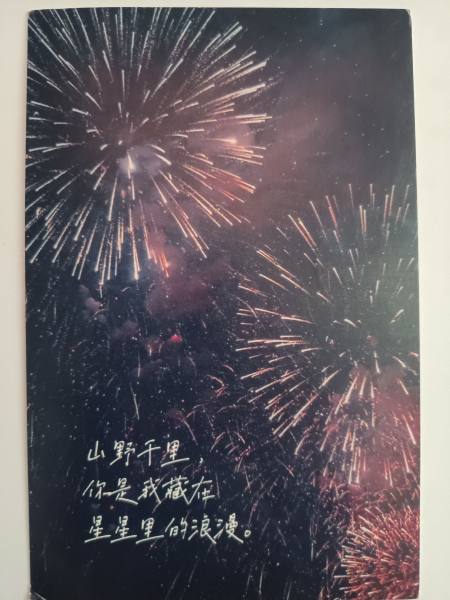 山野千里，
你是我藏在
星星里的浪漫。